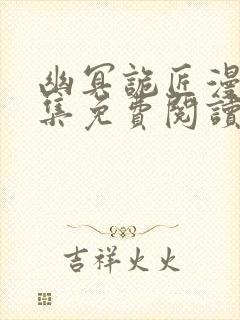 幽冥詭匠漫
集免費閱讀
吉祥火火